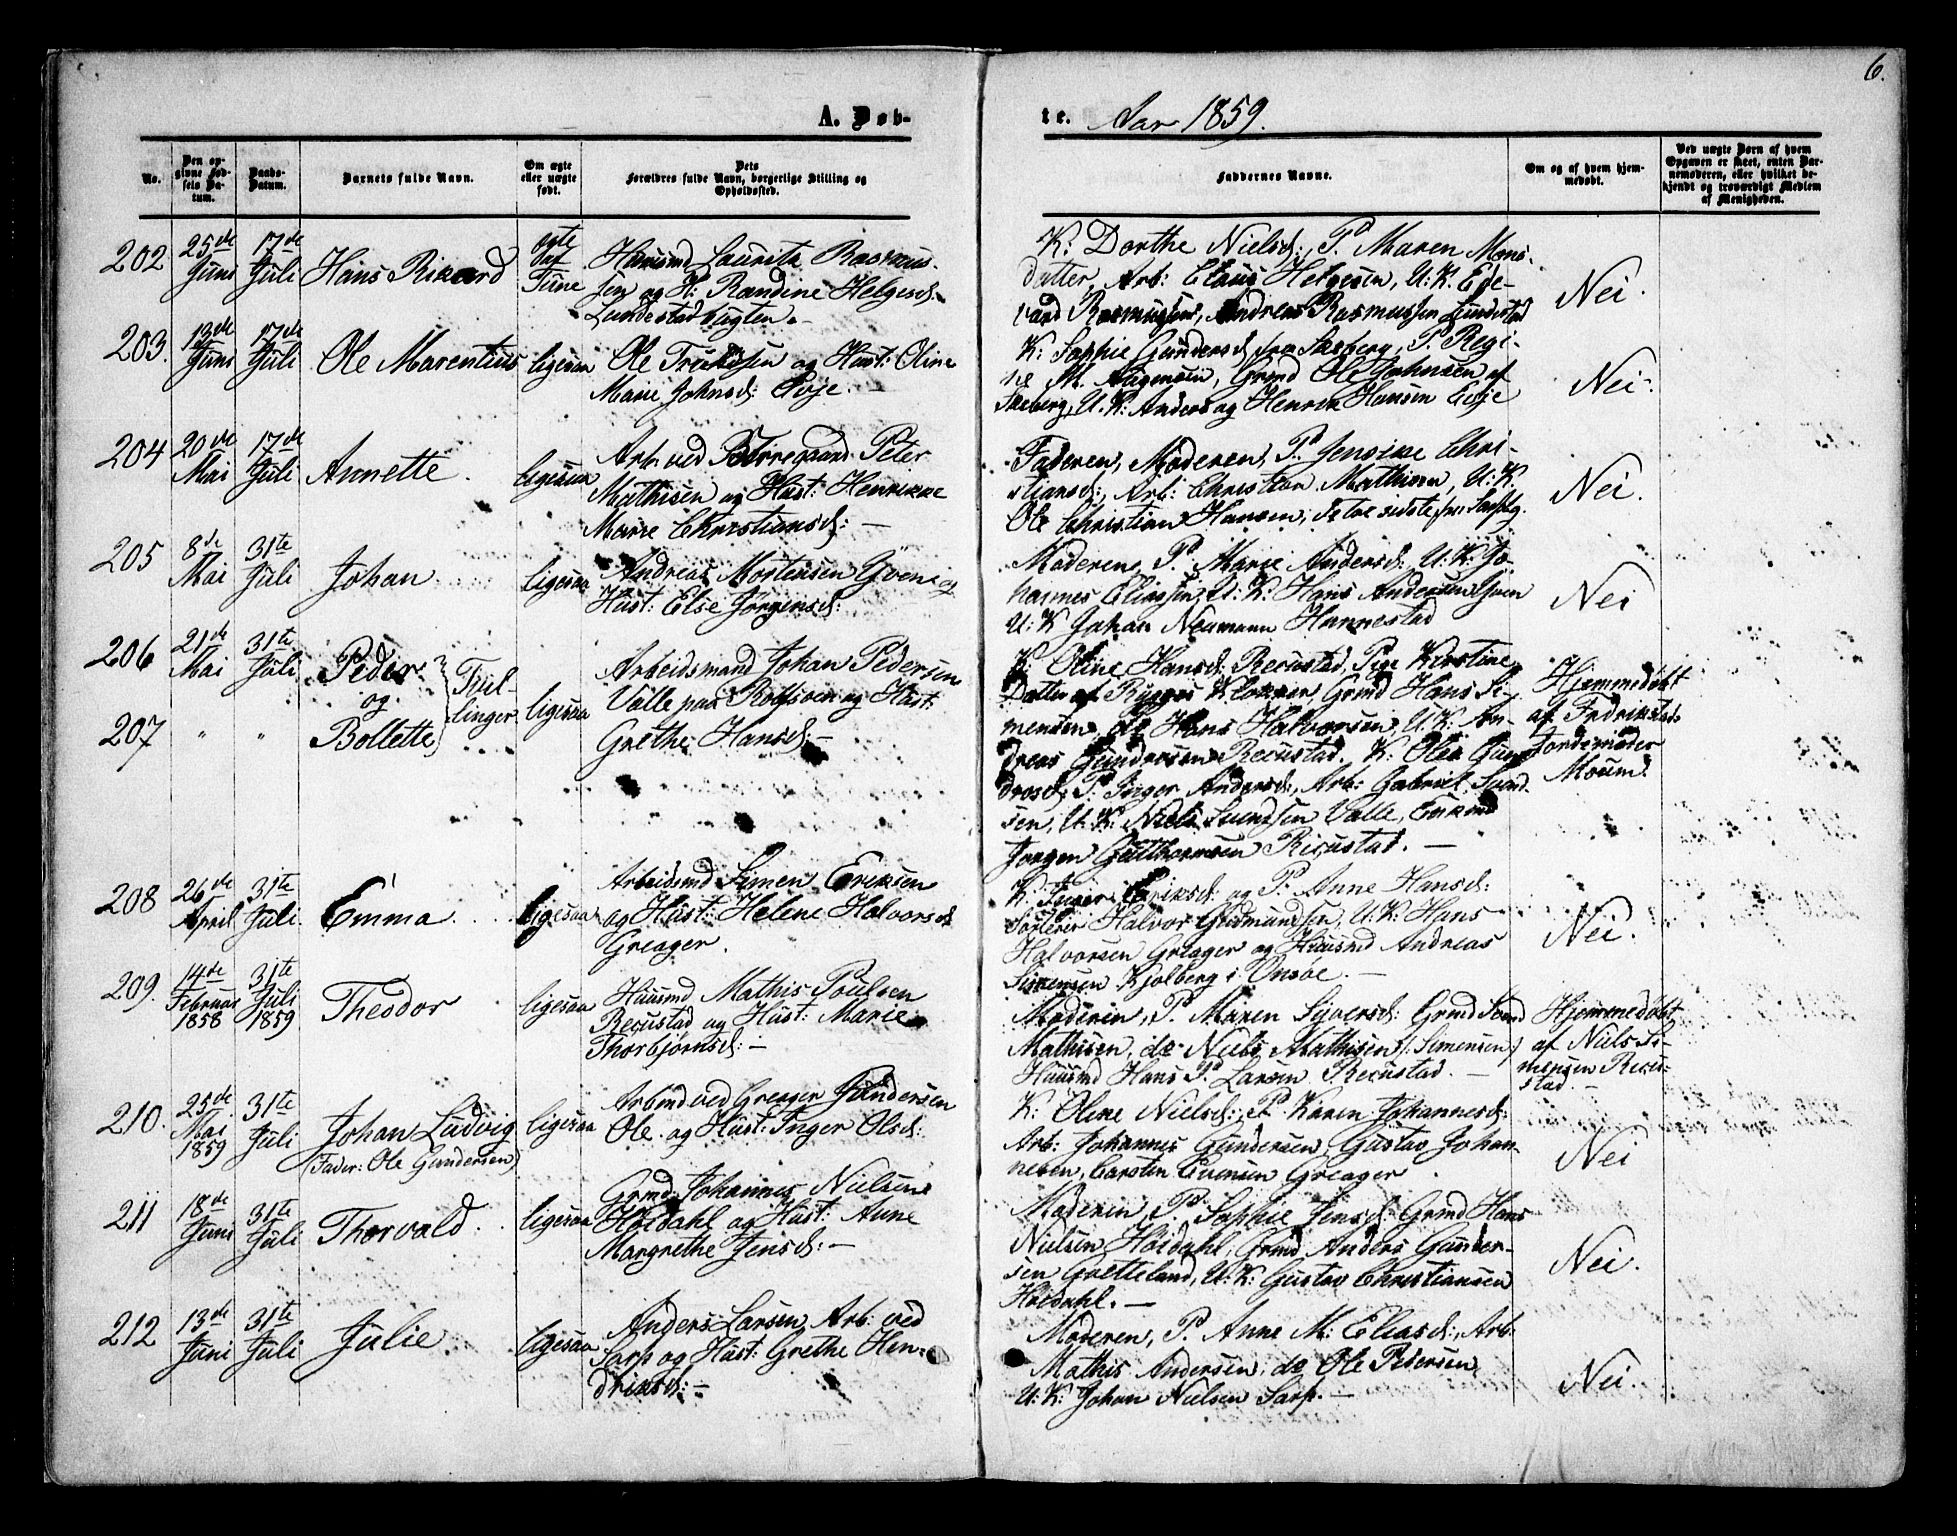 6.
A. Døb-
te. Aar 1859.
No.
Den op-
givne Fød-
sels Da-
tum.
Daabs-
Datum.
Barnets fulde Navn.
Om ægte
eller uægte
født.
Dets
Forældres fulde Navn, borgerlige Stilling og
Opholdssted.
Faddernes Navne.
Om og af hvem hjem-
medøbt.
Ved uægte Børn af hvem
Opgaven er skeet, enten Bar-
nemoderen, eller hvilket be-
kjendt og troværdigt Medlem
af Menigheden.
202 25de Juni 17de Juli Hans Rikard ægte af Tune
Huusmd Laurits Rasmus-
sen og H: Randine Helgesd:
Lundestadbugten.
K: Dorthe Nielsd:, P. Maren Mons-
datter, Arb: Claus Helgesen, U: K. Ede-
vard Rasmussen, Andreas Rasmussen Lundestad
Nei.
203. 13de Juni 17de Juli Ole Marentius ligesaa
Ole Trulssen og Hust: Oline
Marie Johnsd: Evje.
K: Sophie Gundersd: fra Skeberg, P. Regi-
ne M. Aagensen, Grmd Ole Johnsen af
Skeberg, U. K: Anders og Henrik Hansen Evje
Nei.
204 20de Mai 17de Juli Annette. ligesaa
Arb. ved Borregaard Peter
Mathisen og Hust: Henrikke
Marie Christiansd: —
Faderen, Moderen, P. Jensine Chri-
stiansd:, Arb: Christian Mathisen, U: K.
Ole Christian Hansen, de to sidste fra Sarpbg.
Nei.
205 8de Mai 31te Juli Johan ligesaa
Andreas Mortensen Gjven og
Hust: Else Jørgensd:
Moderen, P. Marie Andersd: U: K: Jo-
hannes Eliassen, U: K: Hans Andersen Gjven
U: K Johan Neumann Hannestad
Nei
206 21de Mai 31te Juli Peder
og
207 " " Bollette
Tvil-
linger ligesaa
Arbeidsmand Johan Pedersen
Valle paa Rolfsøen og Hust:
Grethe Hansd: —
K. Oline Hansd: Recustad, Pige Kirstine
Datter af Rygges Klokker, Grmd Hans Si-
mensen, do Hans Halvorsen, U: K. An-
dreas Gundersen Recustad. K. Olea Gun-
drosd:, P. Inger Andersd:, Arb: Gabriel Svend-
sen, U: K. Niels Svendsen Valle, Enkemd
Jørgen Gulthormsen Recustad. —
Hjemmedøbt
af Fredrikstads
Jordemoder
Moum.
208 26de April. 31te Juli. Emma. ligesaa
Arbeidsmd Simen Eriksen
og Hust: Helene Halvorsd:
Greager.
K. Inger Eriksd: og P. Anne Hansd:
Sorterer Halvor Gudmundsen, U: K: Hans
Halvorsen Greager og Huusmd Andreas
Simensen Kjølberg i Onsøe. —
Nei.
209. 14de Februar 1858 31te Juli 1859 Theodor ligesaa
Huusmd Mathis Poulsen
Recustad og Hust: Marie
Thorbjørnsd: —
Moderen, P. Maren Syversd: Grmd Svend
Mathisen, do Niels Mathisen (: Simensen :)
Huusmd Hans P. Larsen Recustad. —
Hjemmedøbt
af Niels Si-
mensen Recu-
stad. —
210. 25de Mai 1859 31te Juli Johan Ludvig
(Fader: Ole Gundersen) ligesaa
Arbmd ved Greager Gundersen
Ole og Hust: Inger Olsd:
K: Oline Nielsd:, P. Karen Johannesd:
Arb: Johannes Gundersen, Gustav Johan-
nesen, Carsten Evensen Greager.
Nei
211 18de Juni 31te Juli Thorvald. ligesaa
Grmd Johannes Nielsen
Høidahl og Hust: Anne
Margrethe Jensd: —
Moderen, P. Sophie Jensd: Grmd Hans
Nielsen Høidahl, Grmd Anders Gunder-
sen Goetteland, U: K: Gustav Christiansen
Høidahl. —
Nei.
212 13de Juni 31te Juli Julie. ligesaa
Anders Larsen, Arb: ved
Sarp og Hust: Grethe Hen-
driksd: —
Moderen, P. Anne M: Eliasd:, Arb:
Mathis Andersen, do Ole Pedersen,
U: K: Johan Nielsen Sarp. —
Nei.